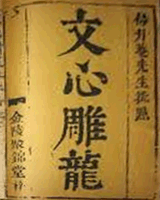 楊升菴先生批點
文心雕龍
金陵聚錦堂梓